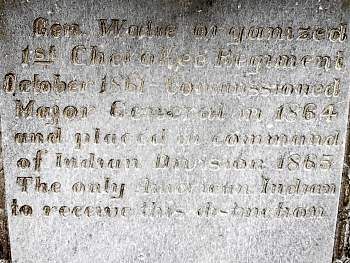 Gen. Watie organized
1st Cherokee Regiment
October 1861 - Commissioned
Major General in 1864
and placed in command
of Indian Division 1865
The only American Indian
to receive this distinction